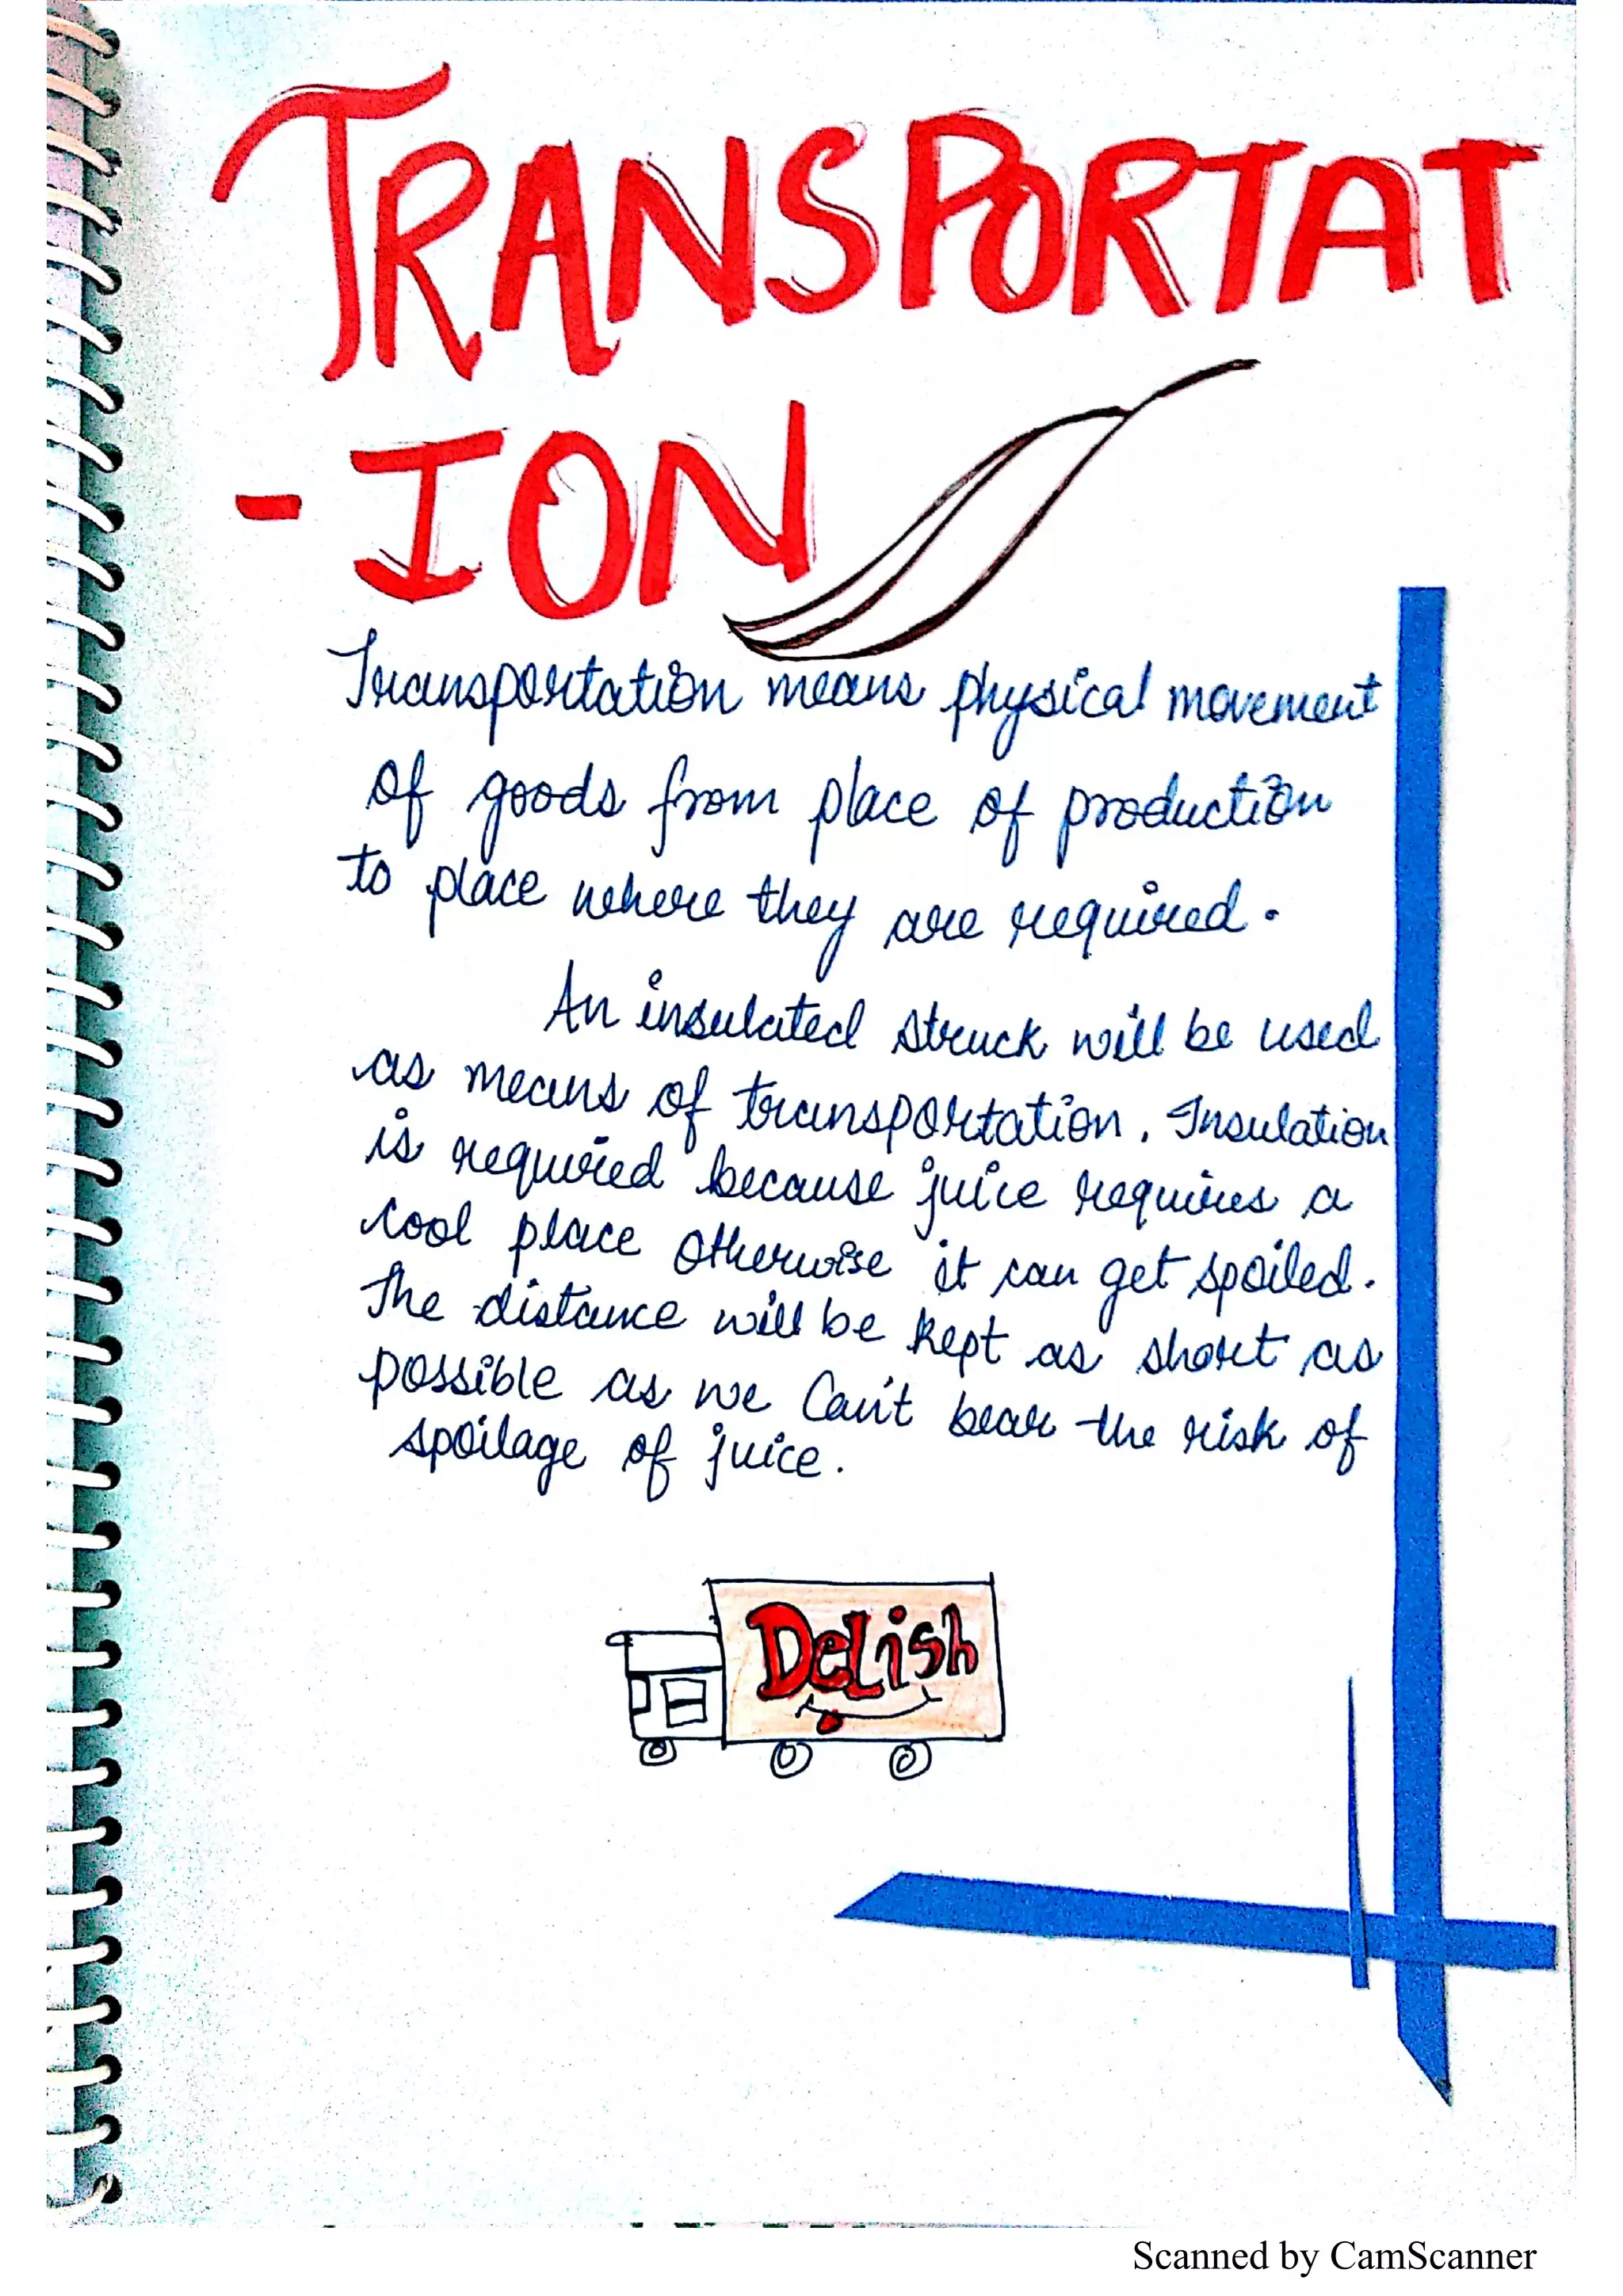 TRANSPORTAT
-ION
Transportation means physical movement
of goods from place of production
to place where they are required.
An insulated struck will be used
as means of transportation. Insulation
is required because juice requires a
cool place otherwise it can get spoiled.
The distance will be kept as short as
possible as we can't bear the risk of
spoilage of juice.
Delish
Scanned by CamScanner